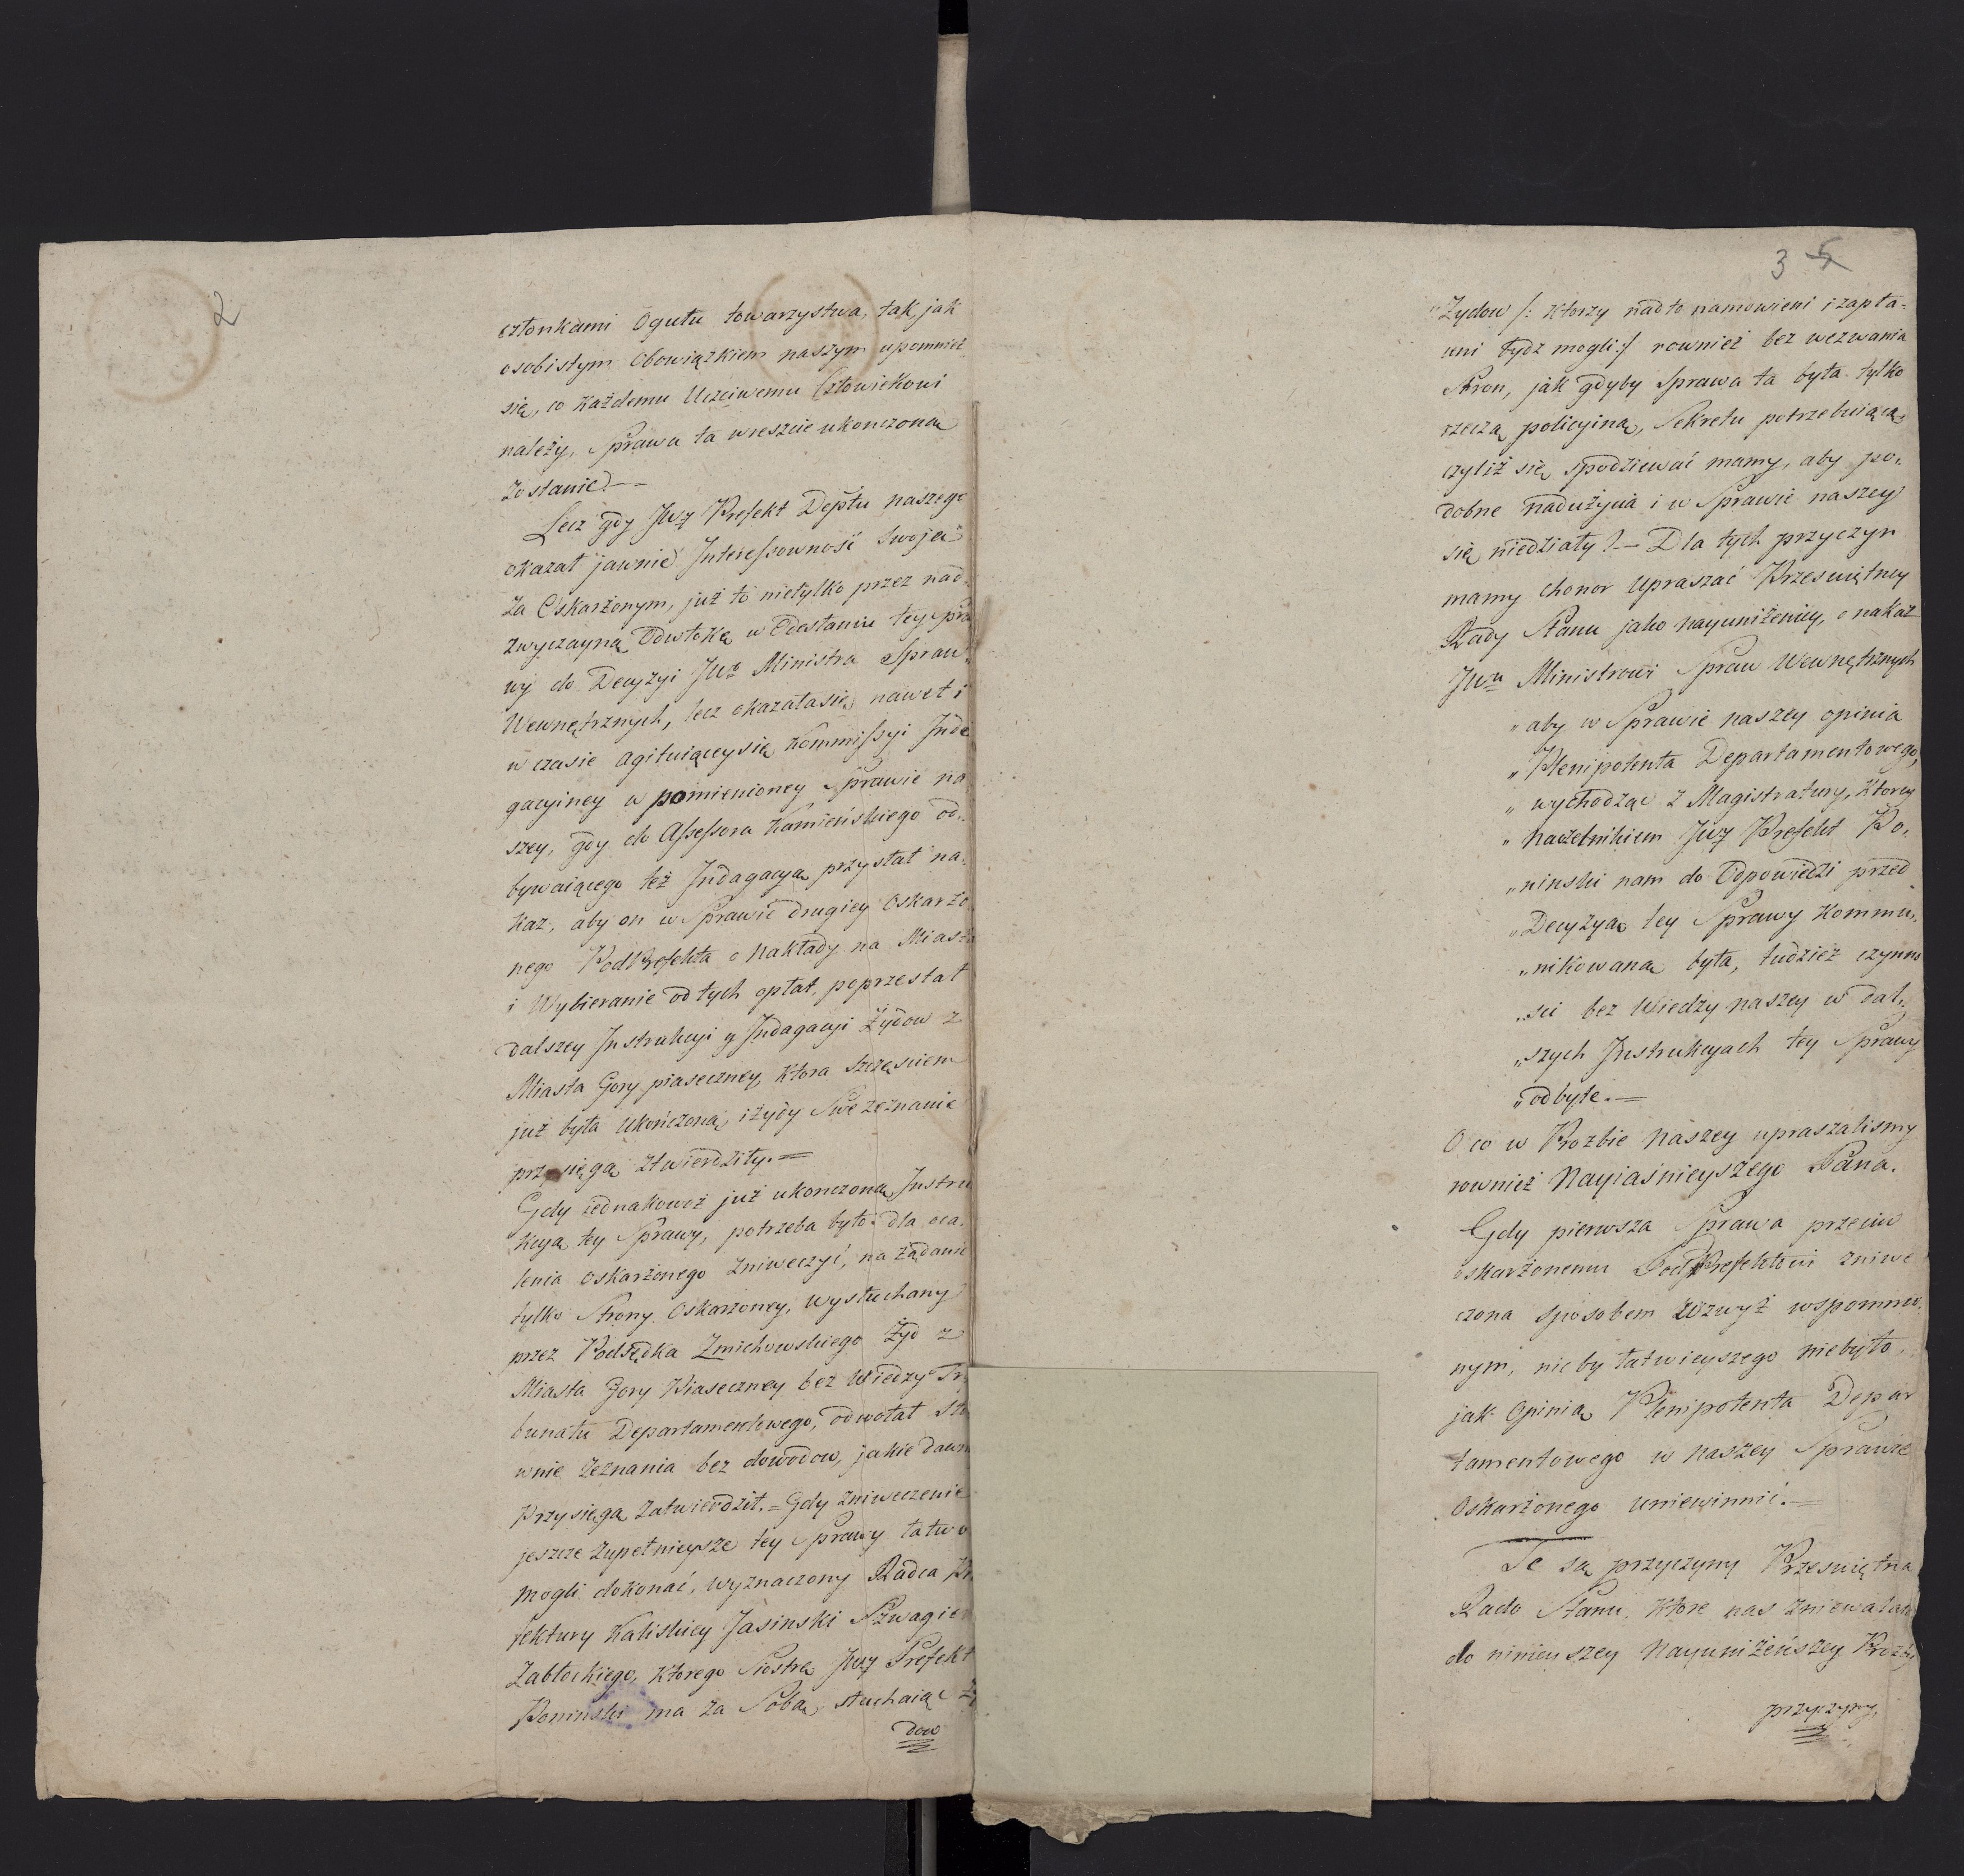 2
członkami Ogułu towarzystwa, tak jak
osobistym Obowiązkiem naszym upomnieć
się, co każdemu Uczciwemu Człowiekowi
należy, Sprawa ta wreszcie ukończoną
zostanie.—
Lecz gdy JWy Prefekt Deptu naszego
okazał jawnie Interessowność Swoją
za Oskarżonym, już to nietylko przez nad-
zwyczayną Odwłokę w Odesłaniu tey Spra
wy do Decyzyi JWo Ministra Spraw
Wewnętrznych, lecz okazała się nawet i
w czasie agituiącey się Kommissyi Inda
gacyiney w pomienioney Sprawie na
szey, gdy do Assessora Kamieńskiego od„
bywaiącego też Indagacyą przysłał na„
kaz, aby on w Sprawie drugiey Oskarżo
nego PodPrefekta o Nakłady na Miasta
i Wybieranie od tych opłat, poprzestał
dalszey Instrukcyi y Indagacyi Żydow z
Miasta Gory piaseczney, ktora szczęsciem
już była Ukończoną, i żydy Swe zeznanie
przysięgą ztwierdziły.—
Gdy iednakowoż już ukonczoną Instru
kcyą tey Sprawy, potrzeba było dla oca„
lenia oskarżonego zniweczyć, na żądanie
tylko Strony Oskarżoney, wysłuchany
przez Podsędka Zmichowskiego Żyd z
Miasta Gory Piaseczney bez Wiedzy Try
bunału Departamentowego, odwołał sto
wnie Zeznania bez dowodow, jakie dawn
Przysięgą Zatwierdził.= Gdy zniweczenie
jeszcze zupełnieysze tey Sprawy łatwo
mogli dokonać, wyznaczony Radca Pre
fektury Kaliskiey Jasinski Szwagier
Zabłockiego, ktorego Siostrę JWy Prefekt
Poninski ma za Sobą, słuchaiąc Ży
dow
3 5
„Zydow /: ktorzy nadto namowieni i zapła-
ceni bydź mogli :/ rownież bez wezwania
Stron, jak gdyby Sprawa ta była tylko
rzeczą policyiną, Sekretu potrzebuiącą,
czyliż się spodziewać mamy, aby po„
dobne nadużycia i w Sprawie naszey
się niedziały?— Dla tych przyczyn
mamy chonor Upraszać Przeswiętney
Rady Stanu jako nayuniżeniey, o nakaz
JWu Ministrowi Spraw Wewnętrznych
„aby w Sprawie naszey opinia
„Plenipotenta Departamentowego,
„wychodząc z Magistratury, ktorey
„Naczelnikiem JWy Prefekt Po„
„ninski nam do Odpowiedzi przed
„Decyzyą tey Sprawy kommu„
„nikowaną była, tudzież czynno
„sci bez Wiedzy naszey w dal„
„szych Instrukcyach tey Sprawy
„odbyte.—
O co w Prozbie Naszey upraszalismy
rownież Nayiaśnieyszego Pana.
Gdy pierwsza Sprawa przeciw
oskarżonemu PodPrefektowi zniwe
czona sposobem zwyż wspomnio„
nym, nic by łatwieyszego niebyło,
jak Opinią Plenipotenta Depar
tamentowego w naszey Sprawie
Oskarżonego uniewinnić.—
Te są przyczyny Przeswiętna
Rado Stanu, ktore nas zniewalaią
do ninieyszey Nayuniżeńszey Prozby
przyczyny,